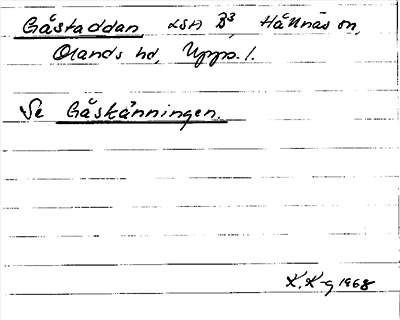 Gåstaddan LSA B3, Hållnäs sn,
Olands hd, Upps. l.
Se Gåskänningen.
K.K-g 1968